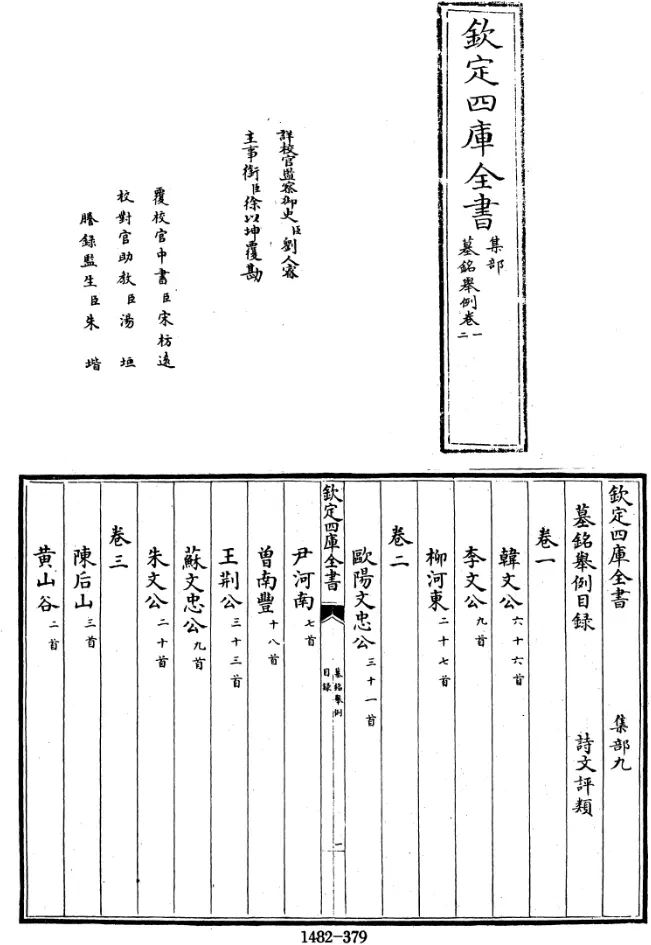 欽定四庫全書
集部
墓銘舉例卷一
二
詳校官監察御史臣劉人睿
主事銜臣徐以坤覆勘
覆校官中書臣宋枋遠
校對官助教臣湯垣
謄錄監生臣朱堦
欽定四庫全書 集部九
墓銘舉例目録 詩文評類
卷一
韓文公六十六首
李文公九首
柳河東二十七首
卷二
歐陽文忠公三十一首
欽定四庫全書
墓銘舉例
目録
一
尹河南七首
曾南豐十八首
王荆公三十三首
蘇文忠公九首
朱文公二十首
卷三
陳后山三首
黄山谷二首
1482-379